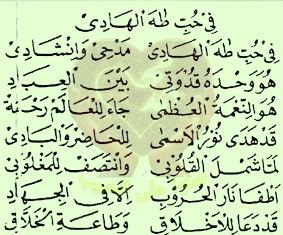 فِي حُبِّ طٰهَ الهَادِي
فِي حُبِّ طٰهَ الهَادِي مَدْحِي وَإِنْشَادِي
هُوَ وَحْدَهُ قُدْوَتِي بَيْنَ العِبَادِ
هُوَ النِّعْمَةُ العُظْمَى جَاءَ لِلْعَالَمْ رَحْمَةْ
قَدْ هَدَى نُورُ الأَسْمَى لِلْحَاضِرِ وَالبَادِي
لَمَّا شَمْلَ القُلُوبِي وَانْتَصَفْ لِلْمَغْلُوبِي
اَطْفَا نَارَ الحُرُوبِ اَلَا فِي الجِهَادِ
قَدْ دَعَا لِلأَخْلَاقِ وَطَاعَةِ الخَلَّاقِ